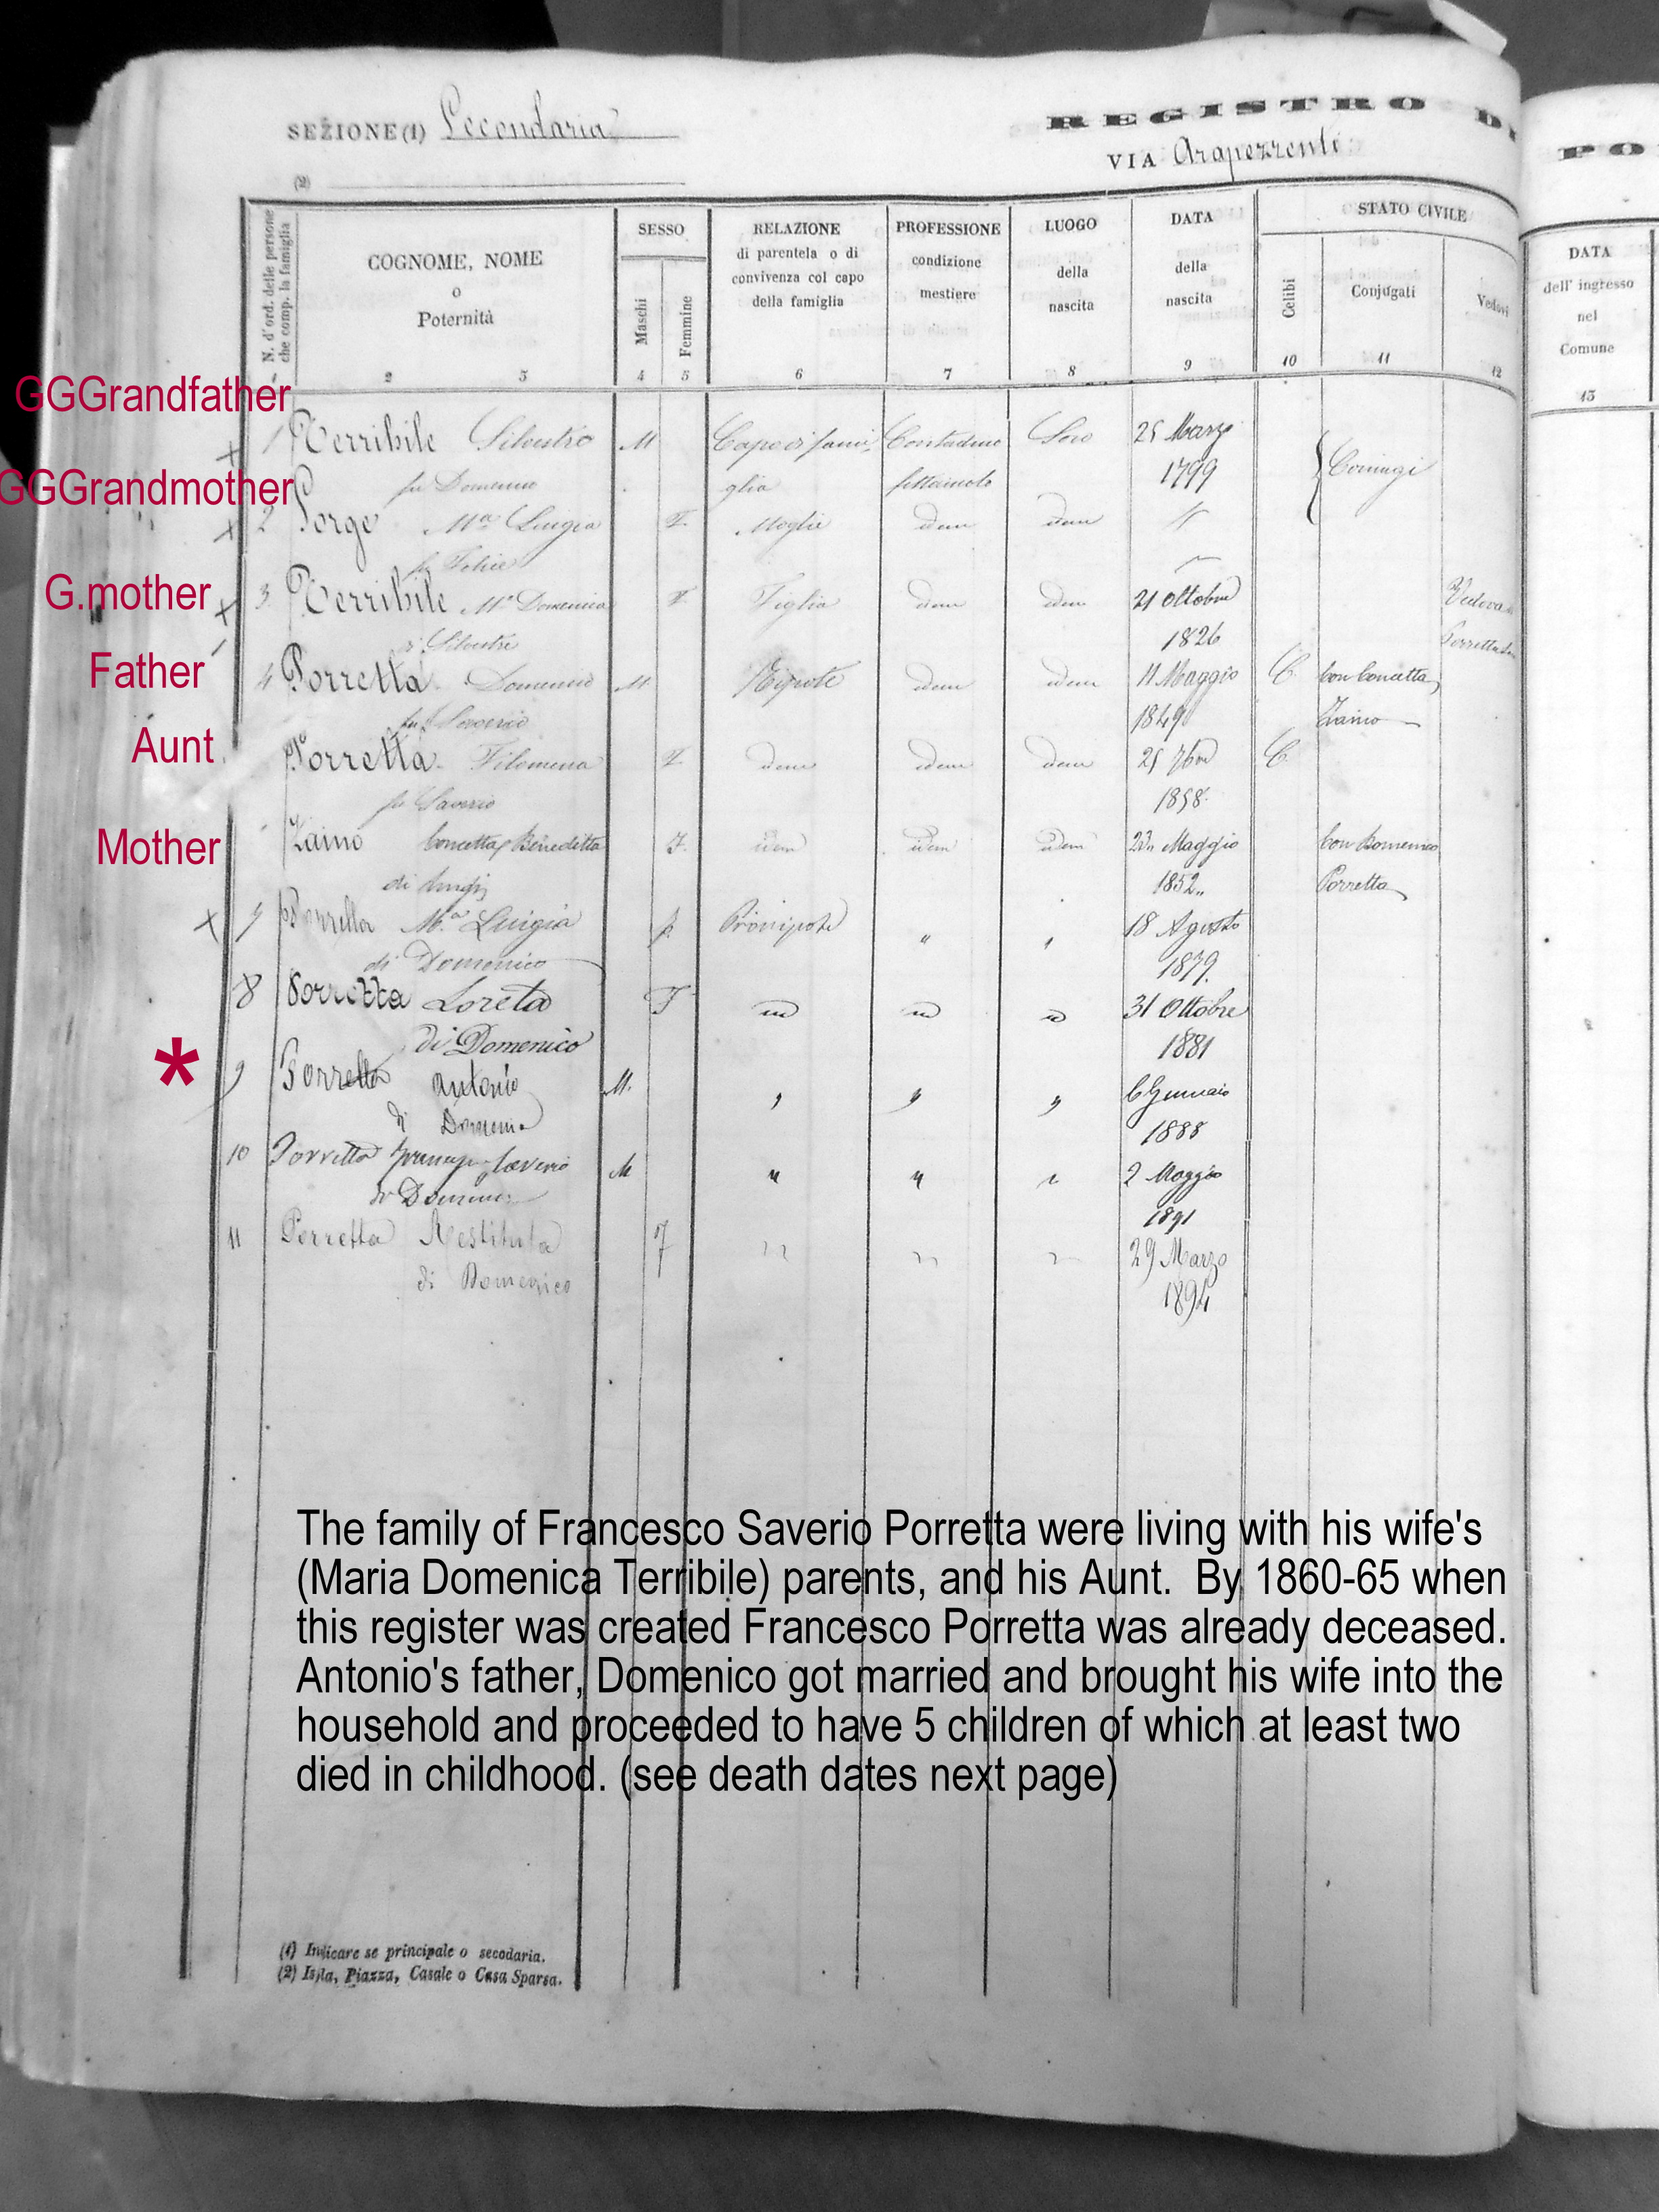 SEZIONE (1) Secondaria
REGISTRO DI
PO
VIA Arapezzenti
(2)
N. d'ord. delle persone che comp. la famiglia
COGNOME, NOME
o
Poternità
2 3
SESSO
Maschi
4
Femmine
5
RELAZIONE
di parentela o di
convivenza col capo
della famiglia
6
PROFESSIONE
condizione
mestiere
7
LUOGO
della
nascita
8
DATA
della
nascita
9
STATO CIVILE
Celibi
10
Conjugati
11
Vedovi
12
DATA
dell' ingresso
nel
Comune
13
GGGrandfather
1 Terribile Silvestro M Capo di fami- Contadino Sora 25 Marzo
fu Domenico glia fittaiuolo 1799 Coniugi
GGGrandmother
2 Porge Mª Luigia F. Moglie idem idem "
fu Felice
G.mother
3 Terribile Mª Domenica F. Figlia idem idem 21 Ottobre Vedova di
di Silvestro 1826 Porretta
Father
4 Porretta Domenico M Nipote idem idem 11 Maggio C. con Concetta
fu Saverio 1849 Zaino
Aunt
Porretta Filomena F. idem idem idem 25 7bre C.
fu Saverio 1858.
Mother
Zaino Concetta Benedetta F. idem idem idem 23 Maggio con Domenico
di Luigi 1852 Porretta
7 Porretta Mª Luigia f. Pronipote " " 18 Agosto
di Domenico 1879.
8 Porretta Loreta F id id id 31 Ottobre
di Domenico 1881
*
9 Porretta Antonio M. " " " 6 Gennaio
di Domenico 1888
10 Porretta Saverio M " " " 2 Maggio
di Domenico 1891
11 Porretta Restituta F " " " 29 Marzo
di Domenico 1894
The family of Francesco Saverio Porretta were living with his wife's
(Maria Domenica Terribile) parents, and his Aunt. By 1860-65 when
this register was created Francesco Porretta was already deceased.
Antonio's father, Domenico got married and brought his wife into the
household and proceeded to have 5 children of which at least two
died in childhood. (see death dates next page)
(1) Indicare se principale o secodaria.
(2) Isola, Piazza, Casale o Casa Sparsa.